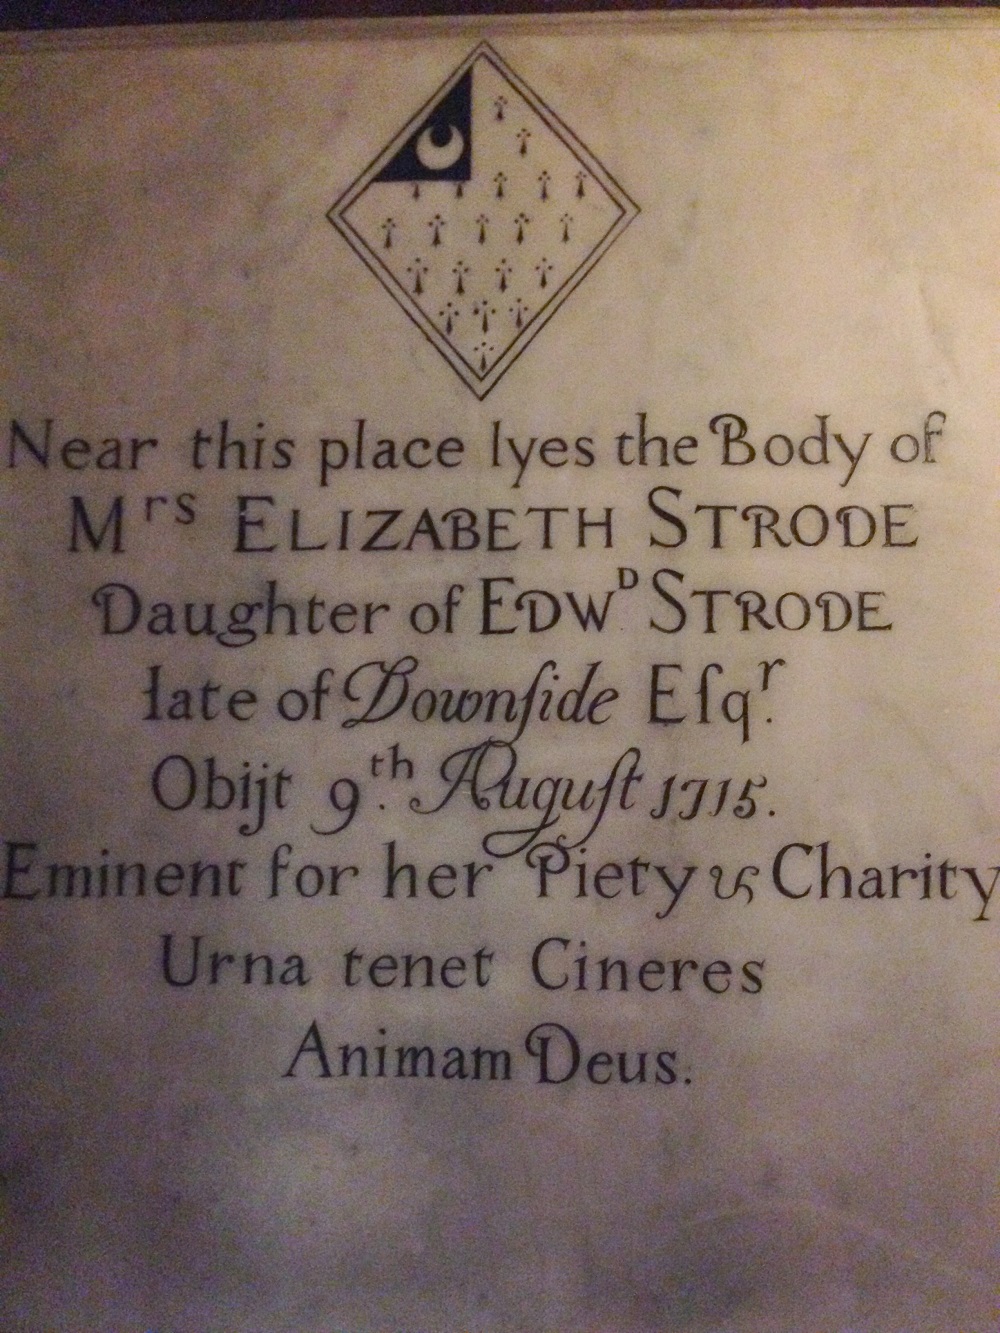 Near this place lyes the Body of
Mrs ELIZABETH STRODE
Daughter of EDWD STRODE
late of Downſide Eſqr.
Obijt 9th. Auguſt 1715.
Eminent for her Piety & Charity
Urna tenet Cineres
Animam Deus.